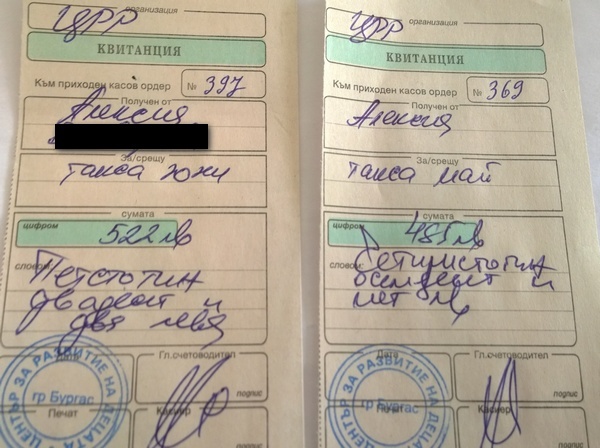 организация
ЦРР
КВИТАНЦИЯ
Към приходен касов ордер № 397
Получен от
Алексия
За/срещу
такса юни
сумата
цифром 522 лв
словом: Петстотин
двадесет и
два лева
Дата
Гл.счетоводител
подпис
Печат
Касиер
подпис
ЦЕНТЪР ЗА РАЗВИТИЕ НА ДЕЦАТА
гр Бургас
организация
ЦРР
КВИТАНЦИЯ
Към приходен касов ордер № 369
Получен от
Алексия
За/срещу
такса май
сумата
цифром 485 лв
словом: Четиристотин
осемдесет и
пет лв
Дата
Гл.счетоводител
подпис
Печат
Касиер
подпис
ЦЕНТЪР ЗА РАЗВИТИЕ НА ДЕЦАТА
гр Бургас